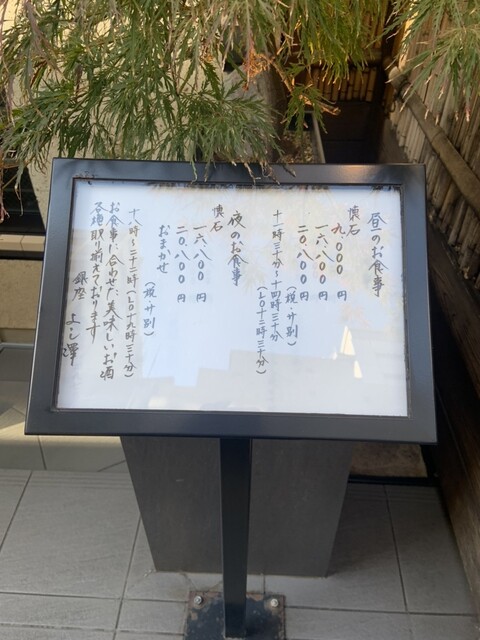 昼のお食事
懐石
九、〇〇〇 円
一六、八〇〇 円
二〇、八〇〇 円
(税サ別)
十一時三十分〜十四時三十分
(LO十二時三十分)
夜のお食事
懐石
一六、八〇〇 円
二〇、八〇〇 円
おまかせ
(税サ別)
十八時〜二十二時(LO十九時三十分)
お食事に合わせた美味しいお酒
各種取り揃えております
銀座 よし澤